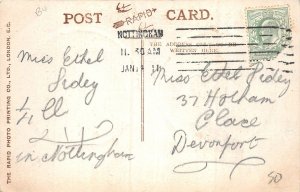 Bu
POST CARD.
RAPID
NOTTINGHAM
11.30 AM
JAN
THE ADDRESS
WRITTEN HERE.
THE RAPID PHOTO PRINTING CO., LTD., LONDON, E.C.
Miss Ethel
Sidey
in Nottingham
Miss Ethel Sidey
37 Hotham
Place
Devonport
50